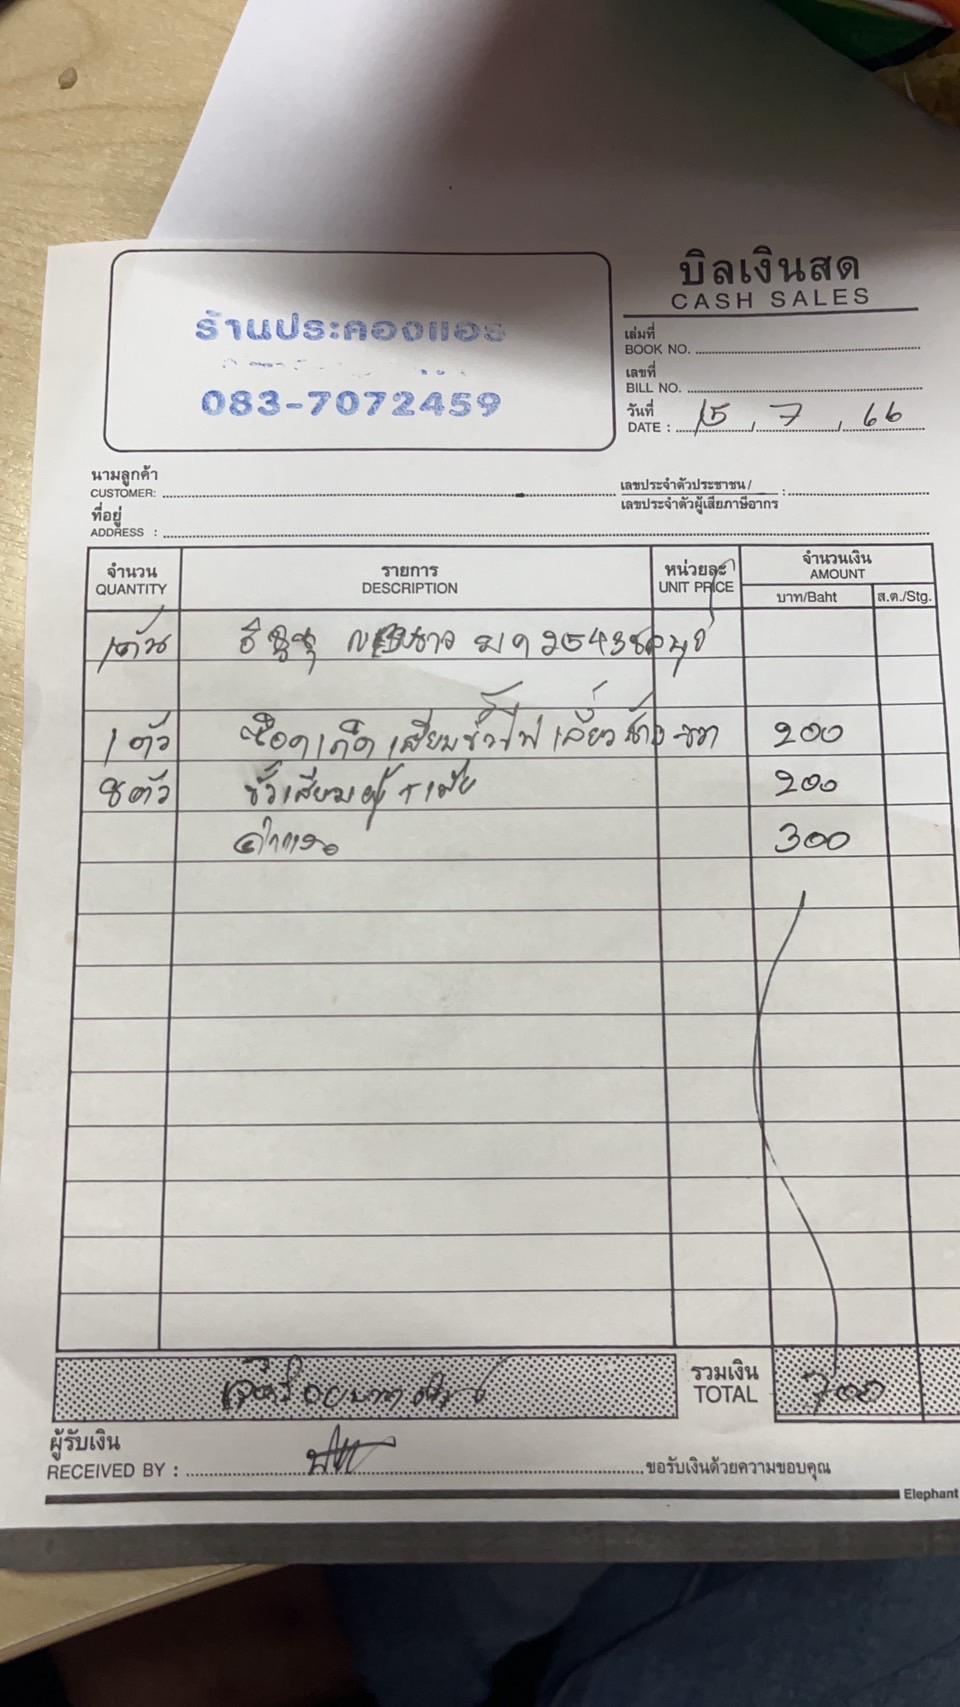 บิลเงินสด
CASH SALES
ร้านประคองแอร์
083-7072459
เล่มที่
BOOK NO.
เลขที่
BILL NO.
วันที่
DATE : 15 , 7 , 66
นามลูกค้า
CUSTOMER:
เลขประจำตัวประชาชน/
เลขประจำตัวผู้เสียภาษีอากร :
ที่อยู่
ADDRESS :
จำนวน รายการ หน่วยละ จำนวนเงิน
QUANTITY DESCRIPTION UNIT PRICE AMOUNT
บาท/Baht ส.ต./Stg.
1 คัน อีซูซุ 2543 ชลบุรี
1 ตัว 200
8 ตัว ขั้วเสียบ 200
ค่าแรง 300
เจ็ดร้อยบาทถ้วน
รวมเงิน
TOTAL 700
ผู้รับเงิน
RECEIVED BY : ขอรับเงินด้วยความขอบคุณ
Elephant